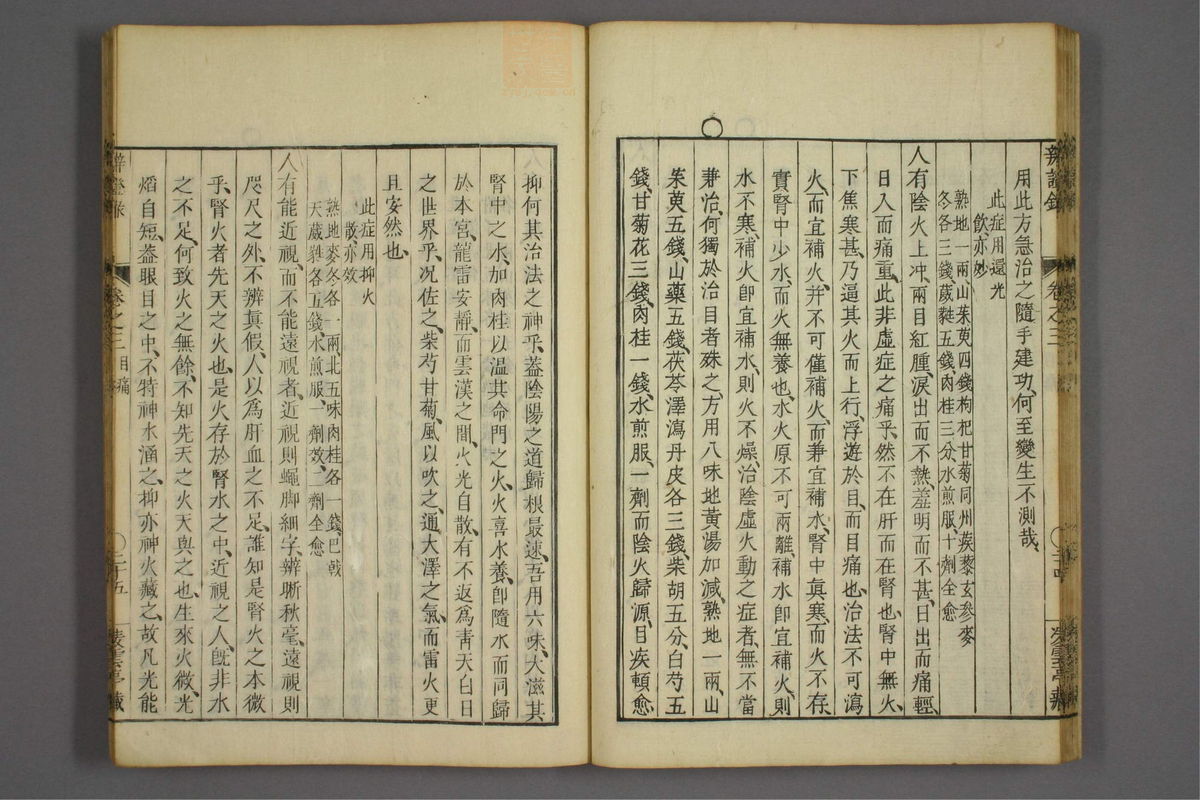 辨證錄
卷之三
用此方急治之隨手建功何至變生不測哉
此症用還光飲亦妙
熟地一兩山茱萸四錢枸杞甘菊同州蒺藜玄參麥
冬各三錢葳蕤五錢肉桂三分水煎服十劑全愈
人有陰火上冲兩目紅腫淚出而不熱羞明而不甚日出而痛輕
日入而痛重此非虛症之痛乎然不在肝而在腎也腎中無火
下焦寒甚乃逼其火而上行浮遊於目而目痛也治法不可瀉
火而宜補火并不可僅補火而兼宜補水腎中真寒而火不存
實腎中少水而火無養也水火原不可兩離補水卽宜補火則
水不寒補火卽宜補水則火不燥治陰虛火動之症者無不當
兼治何獨於治目者殊之方用八味地黃湯加減熟地一兩山
茱萸五錢山藥五錢茯苓澤瀉丹皮各三錢柴胡五分白芍五
錢甘菊花三錢肉桂一錢水煎服一劑而陰火歸源目疾頓愈
抑何其治法之神乎蓋陰陽之道歸根最速吾用六味大滋其
腎中之水加肉桂以溫其命門之火火喜水養卽隨水而同歸
於本宮龍雷安靜而雲漢之間火光自散有不返爲靑天白日
之世界乎况佐之柴芍甘菊風以吹之通大澤之氣而雷火更
且安然也
此症用抑火散亦效
熟地麥冬各一兩北五味肉桂各一錢巴戟
天葳蕤各五錢水煎服一劑效二劑全愈
人有能近視而不能遠視者近視則蠅脚細字辨晰秋毫遠視則
咫尺之外不辨眞假人以爲肝血之不足誰知是腎火之本微
乎腎火者先天之火也是火存於腎水之中近視之人旣非水
之不足何致火之無餘不知先天之火天與之也生來火微光
熖自短蓋眼目之中不特神水涵之抑亦神火藏之故凡光能
辨證錄
卷之三 目痛
二十五